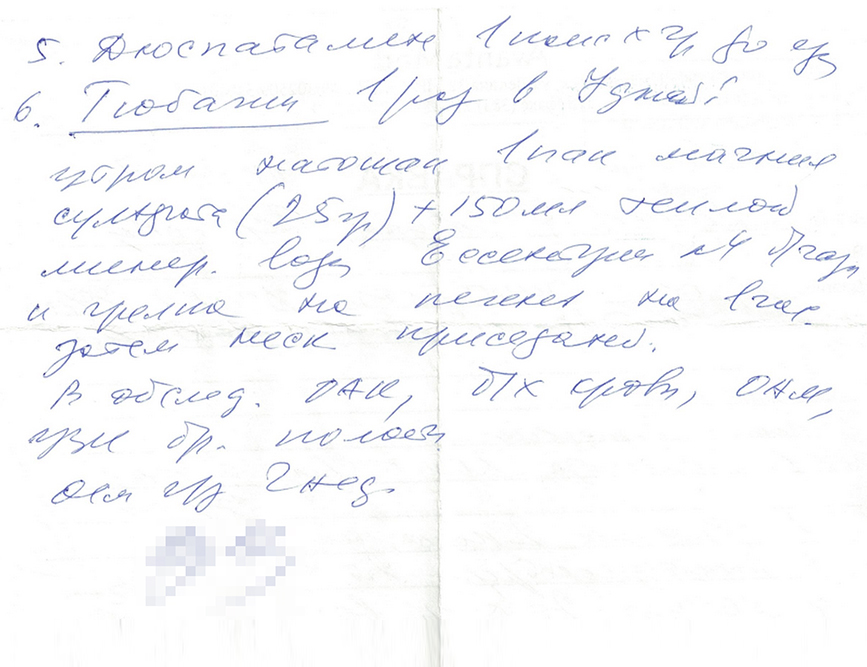 5. Дюспаталин 1 капс х 2р до еды
6. Тюбажи 1 раз в 7 дней:
утром натощак 1 пак магния
сульфата (25гр) + 150мл теплой
минер. воды Ессентуки №4
и грелка на печень на 1 час.
затем неск приседаний.
В обслед. ОАК, б/х крови, ОАМ,
УЗИ бр. полости
осм ч/з 2 нед.